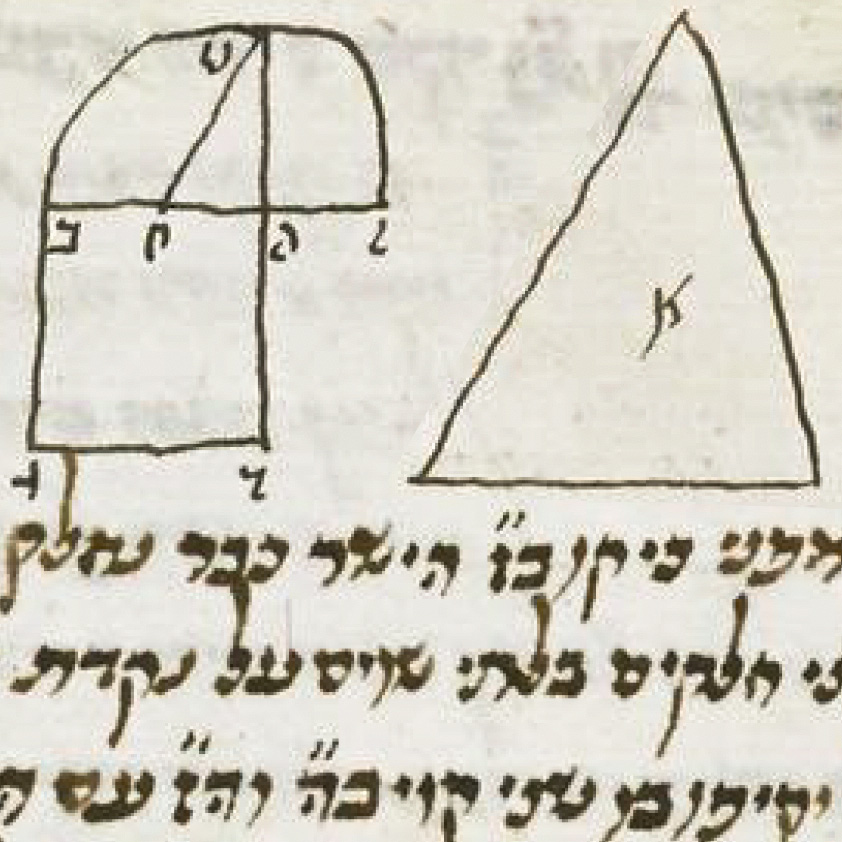 ט
ב ח ה ז
א
ג ד
ומפני כי קו ב״ז הישר כבר נחלק
חלקים בלתי שוים על נקדת
יקיפו בו שני קוי ב״ה וה״ז עם